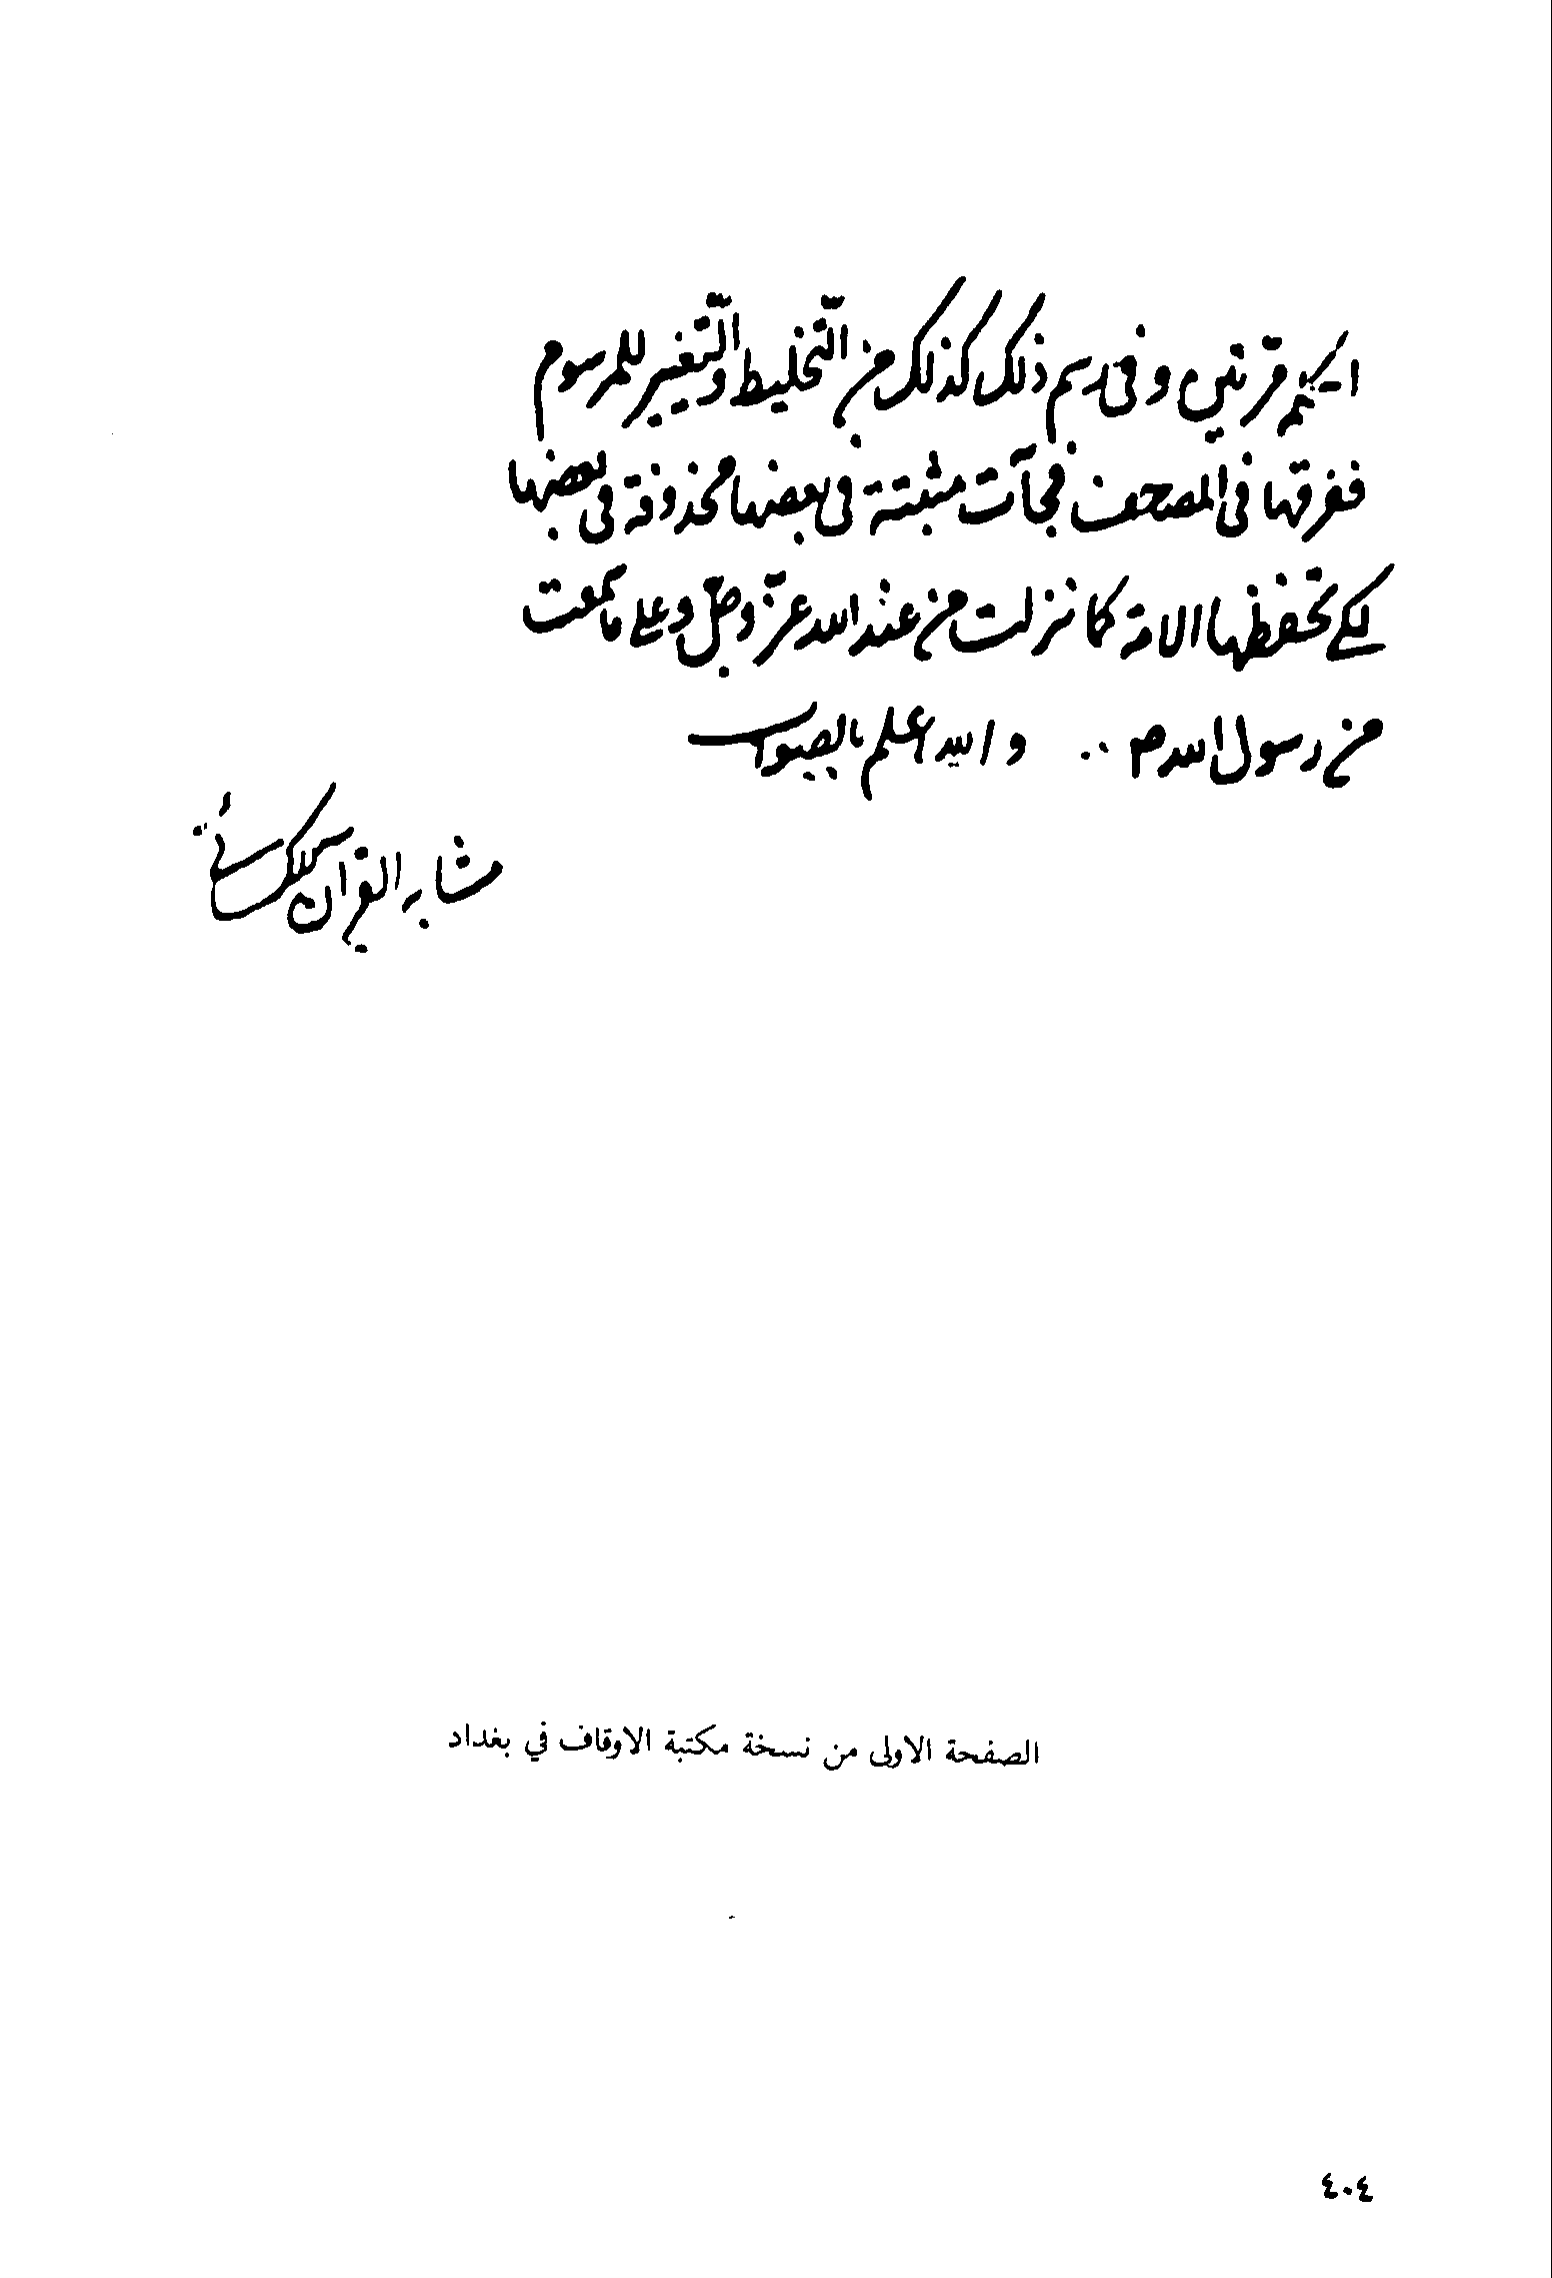 الكلمة مرتين وفى رسم ذلك كذلك من التّخليط والتّغيير للمرسوم
ففرقها فى المصحف فجآت مثبتة فى بعضها محذوفة فى بعضها
لكى تحفظها الامة كما نزلت من عند الله عزّ وجلّ وعلى ما سمعت
من رسول الله ص .. والله اعلم بالصواب
متشابه القرآن للكسائي
الصفحة الاولى من نسخة مكتبة الاوقاف في بغداد
٤٠٤